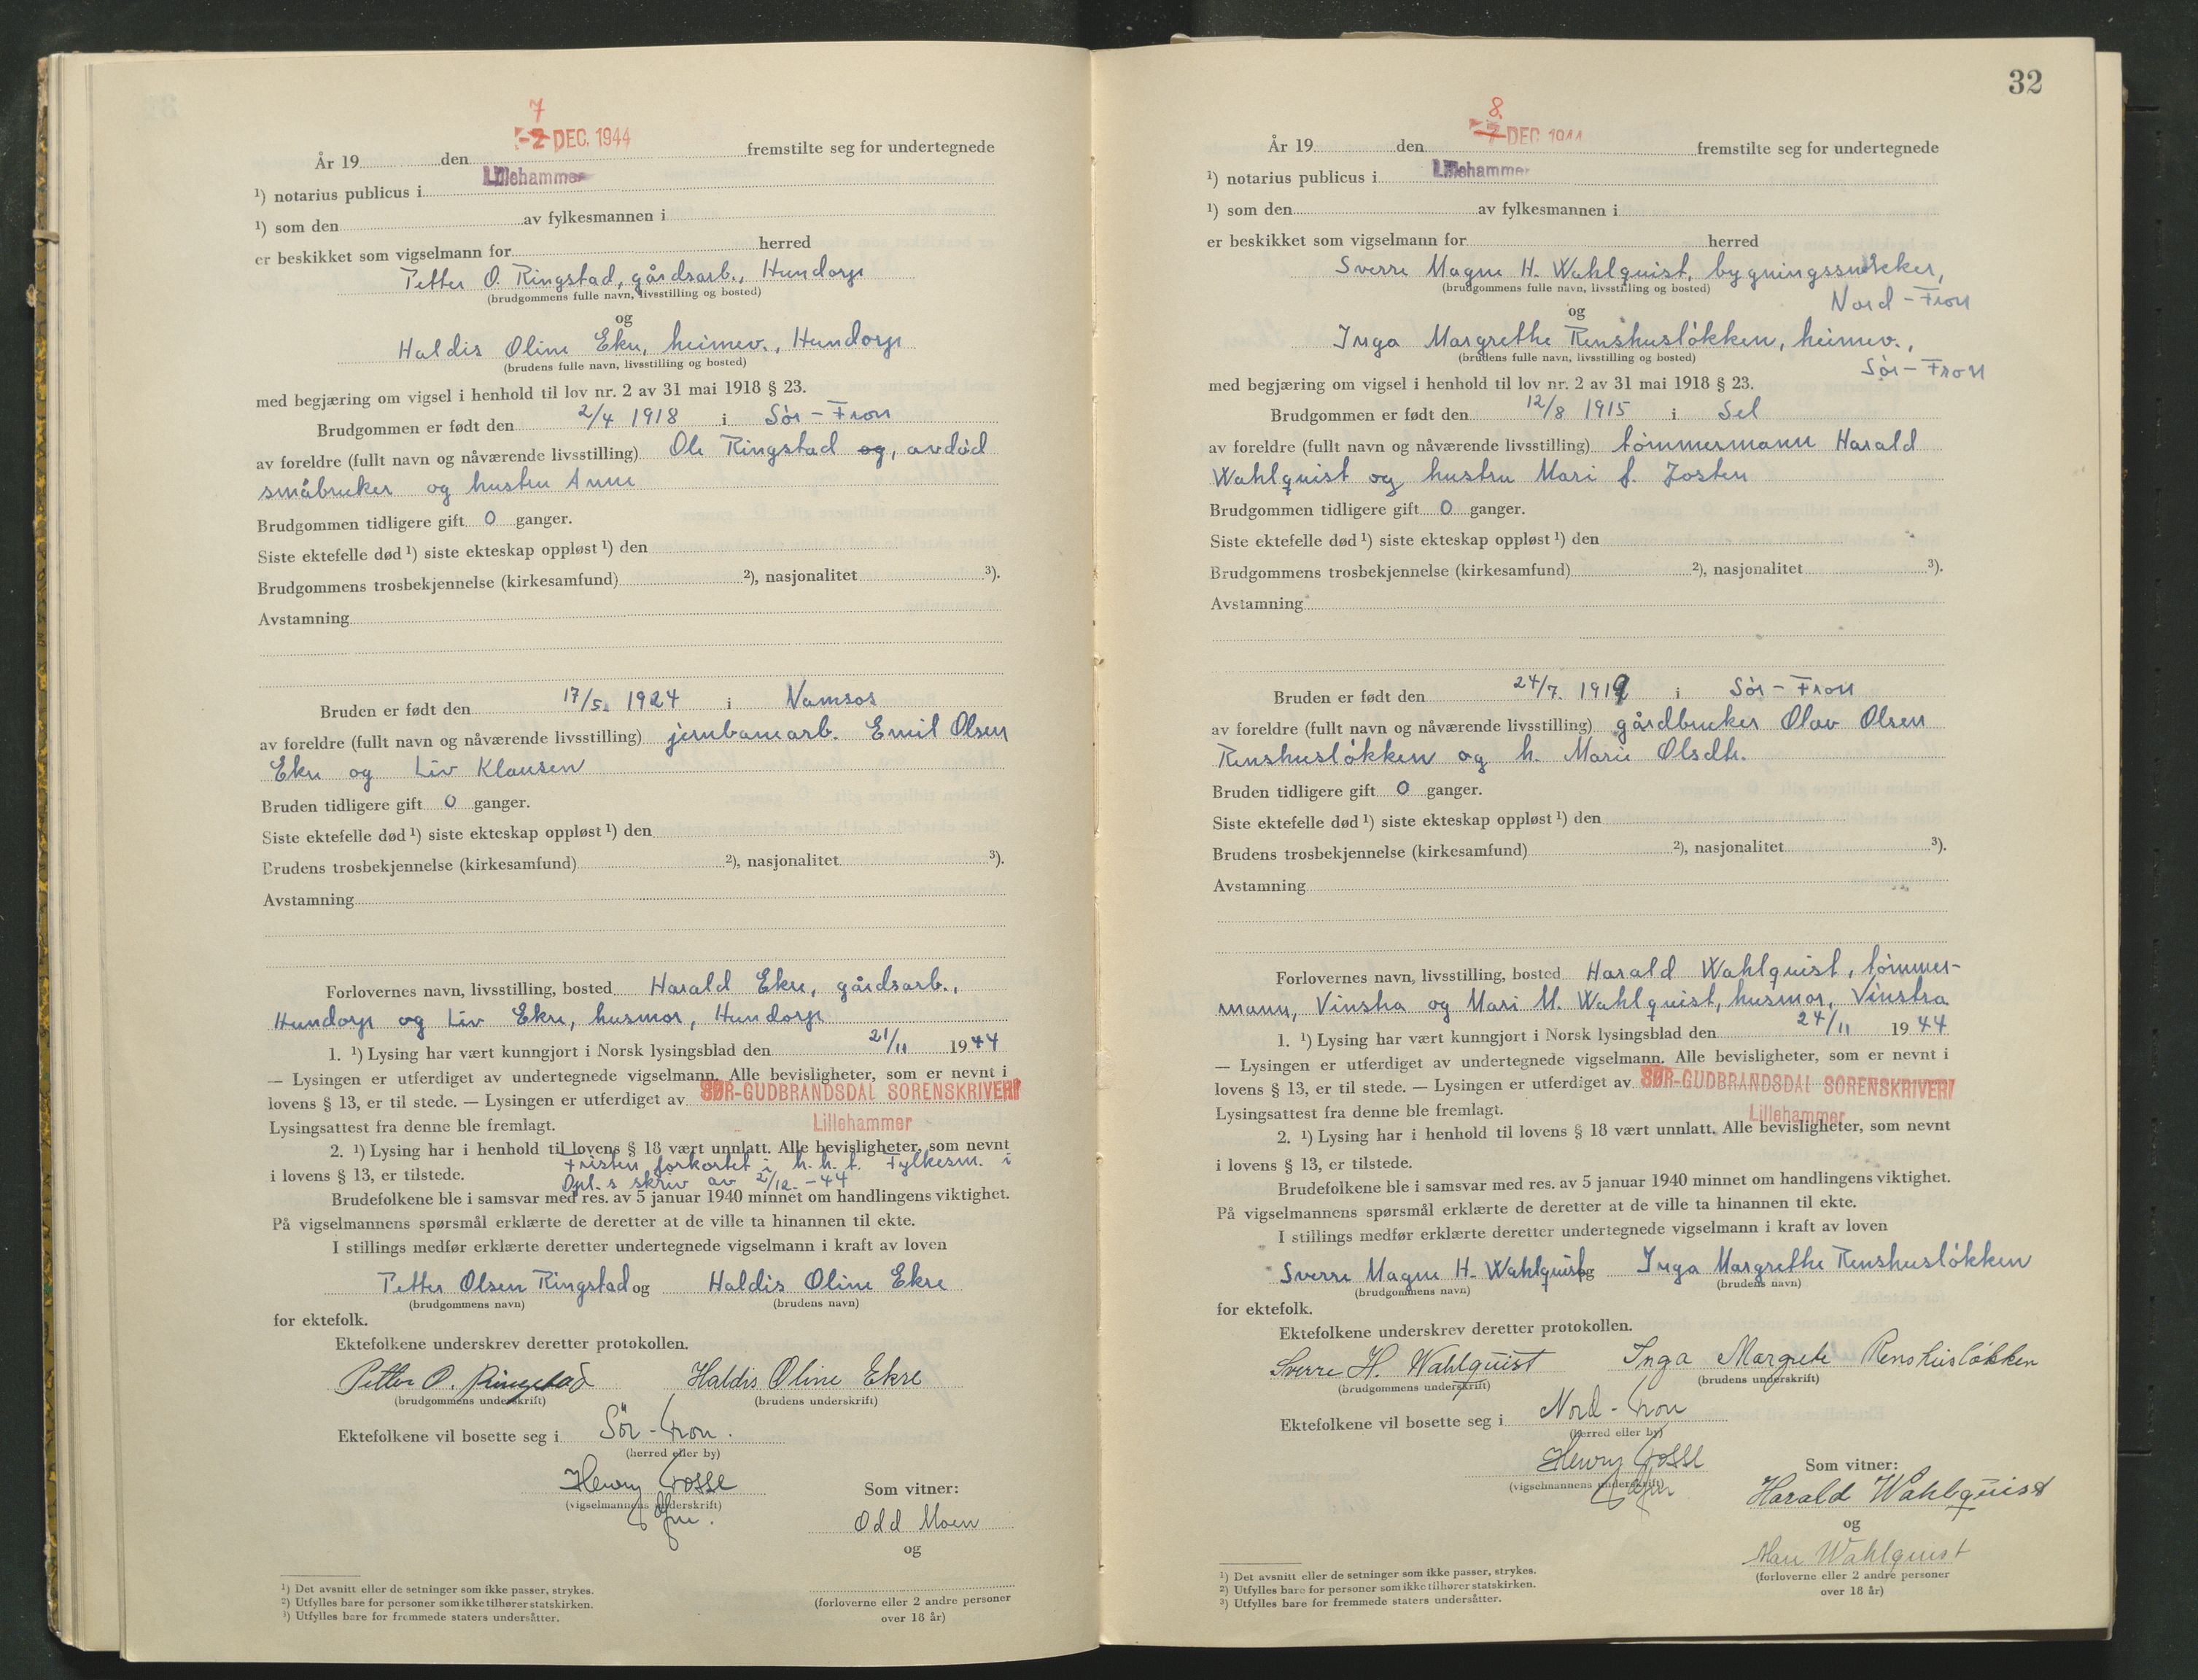 7
-2 DEC. 1944
År 19 den fremstilte seg for undertegnede
Lillehammer
¹) notarius publicus i
¹) som den av fylkesmannen i
er beskikket som vigselmann for herred
Petter O. Ringstad, gårdsarb., Hundorp
(brudgommens fulle navn, livsstilling og bosted)
og
Haldis Oline Ekre, heimev., Hundorp
(brudens fulle navn, livsstilling og bosted)
med begjæring om vigsel i henhold til lov nr. 2 av 31 mai 1918 § 23.
Brudgommen er født den 2/4 1918 i Sør-Fron
av foreldre (fullt navn og nåværende livsstilling) Ole Ringstad og, avdød
småbruker og hustru Anne
Brudgommen tidligere gift 0 ganger.
Siste ektefelle død ¹) siste ekteskap oppløst ¹) den
Brudgommens trosbekjennelse (kirkesamfund) ²), nasjonalitet ³).
Avstamning
Bruden er født den 17/5. 1924 i Namsos
av foreldre (fullt navn og nåværende livsstilling) jernbanearb. Emil Olsen
Ekre og Liv Klausen
Bruden tidligere gift 0 ganger.
Siste ektefelle død ¹) siste ekteskap oppløst ¹) den
Brudens trosbekjennelse (kirkesamfund) ²), nasjonalitet ³).
Avstamning
Forlovernes navn, livsstilling, bosted Harald Ekre, gårdsarb.,
Hundorp og Liv Ekre, husmor, Hundorp
1. ¹) Lysing har vært kunngjort i Norsk lysingsblad den 21/11 1944
— Lysingen er utferdiget av undertegnede vigselmann. Alle bevisligheter, som er nevnt i
lovens § 13, er til stede. — Lysingen er utferdiget av SØR-GUDBRANDSDAL SORENSKRIVERI
Lysingsattest fra denne ble fremlagt. Lillehammer
2. ¹) Lysing har i henhold til lovens § 18 vært unnlatt. Alle bevisligheter, som nevnt
i lovens § 13, er tilstede. Fristen forkortet i h.h.t. Fylkesm. i
Opl.s skriv av 2/12.-44
Brudefolkene ble i samsvar med res. av 5 januar 1940 minnet om handlingens viktighet.
På vigselmannens spørsmål erklærte de deretter at de ville ta hinannen til ekte.
I stillings medfør erklærte deretter undertegnede vigselmann i kraft av loven
Petter Olsen Ringstad og Haldis Oline Ekre
(brudgommens navn) (brudens navn)
for ektefolk.
Ektefolkene underskrev deretter protokollen.
Petter O. Ringstad Haldis Oline Ekre
(brudgommens underskrift) (brudens underskrift)
Ektefolkene vil bosette seg i Sör-Fron.
(herred eller by)
Henry Fosse
(vigselmannens underskrift) Som vitner:
Odd Moen
og
(forloverne eller 2 andre personer
over 18 år)
¹) Det avsnitt eller de setninger som ikke passer, strykes.
²) Utfylles bare for personer som ikke tilhører statskirken.
³) Utfylles bare for fremmede staters undersåtter.
32
8.
-7 DEC 1944
År 19 den fremstilte seg for undertegnede
Lillehammer
¹) notarius publicus i
¹) som den av fylkesmannen i
er beskikket som vigselmann for herred
Sverre Magne H. Wahlquist, bygningssnekker,
(brudgommens fulle navn, livsstilling og bosted)
Nord-Fron
og
Inga Margrethe Renshusløkken, heimev.,
(brudens fulle navn, livsstilling og bosted)
Sør-Fron
med begjæring om vigsel i henhold til lov nr. 2 av 31 mai 1918 § 23.
Brudgommen er født den 12/8 1915 i Sel
av foreldre (fullt navn og nåværende livsstilling) tømmermann Harald
Wahlquist og hustru Mari f. Josten
Brudgommen tidligere gift 0 ganger.
Siste ektefelle død ¹) siste ekteskap oppløst ¹) den
Brudgommens trosbekjennelse (kirkesamfund) ²), nasjonalitet ³).
Avstamning
Bruden er født den 24/7. 1919 i Sør-Fron
av foreldre (fullt navn og nåværende livsstilling) gårdbruker Olav Olsen
Renshusløkken og h. Marie Olsdtr.
Bruden tidligere gift 0 ganger.
Siste ektefelle død ¹) siste ekteskap oppløst ¹) den
Brudens trosbekjennelse (kirkesamfund) ²), nasjonalitet ³).
Avstamning
Forlovernes navn, livsstilling, bosted Harald Wahlquist, tømmer-
mann, Vinstra og Mari M. Wahlquist, husmor, Vinstra
1. ¹) Lysing har vært kunngjort i Norsk lysingsblad den 24/11 1944
— Lysingen er utferdiget av undertegnede vigselmann. Alle bevisligheter, som er nevnt i
lovens § 13, er til stede. — Lysingen er utferdiget av SØR-GUDBRANDSDAL SORENSKRIVERI
Lysingsattest fra denne ble fremlagt. Lillehammer
2. ¹) Lysing har i henhold til lovens § 18 vært unnlatt. Alle bevisligheter, som nevnt
i lovens § 13, er tilstede.
Brudefolkene ble i samsvar med res. av 5 januar 1940 minnet om handlingens viktighet.
På vigselmannens spørsmål erklærte de deretter at de ville ta hinannen til ekte.
I stillings medfør erklærte deretter undertegnede vigselmann i kraft av loven
Sverre Magne H. Wahlquist og Inga Margrethe Renshusløkken
(brudgommens navn) (brudens navn)
for ektefolk.
Ektefolkene underskrev deretter protokollen.
Sverre H. Wahlquist Inga Margrete Renshusløkken
(brudgommens underskrift) (brudens underskrift)
Ektefolkene vil bosette seg i Nord-Fron
(herred eller by)
Henry Fosse
(vigselmannens underskrift) Som vitner:
Harald Wahlquist
og
Mari Wahlquist
(forloverne eller 2 andre personer
over 18 år)
¹) Det avsnitt eller de setninger som ikke passer, strykes.
²) Utfylles bare for personer som ikke tilhører statskirken.
³) Utfylles bare for fremmede staters undersåtter.